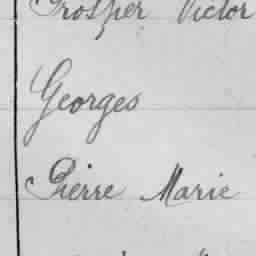 Prosper Victor
Georges
Pierre Marie